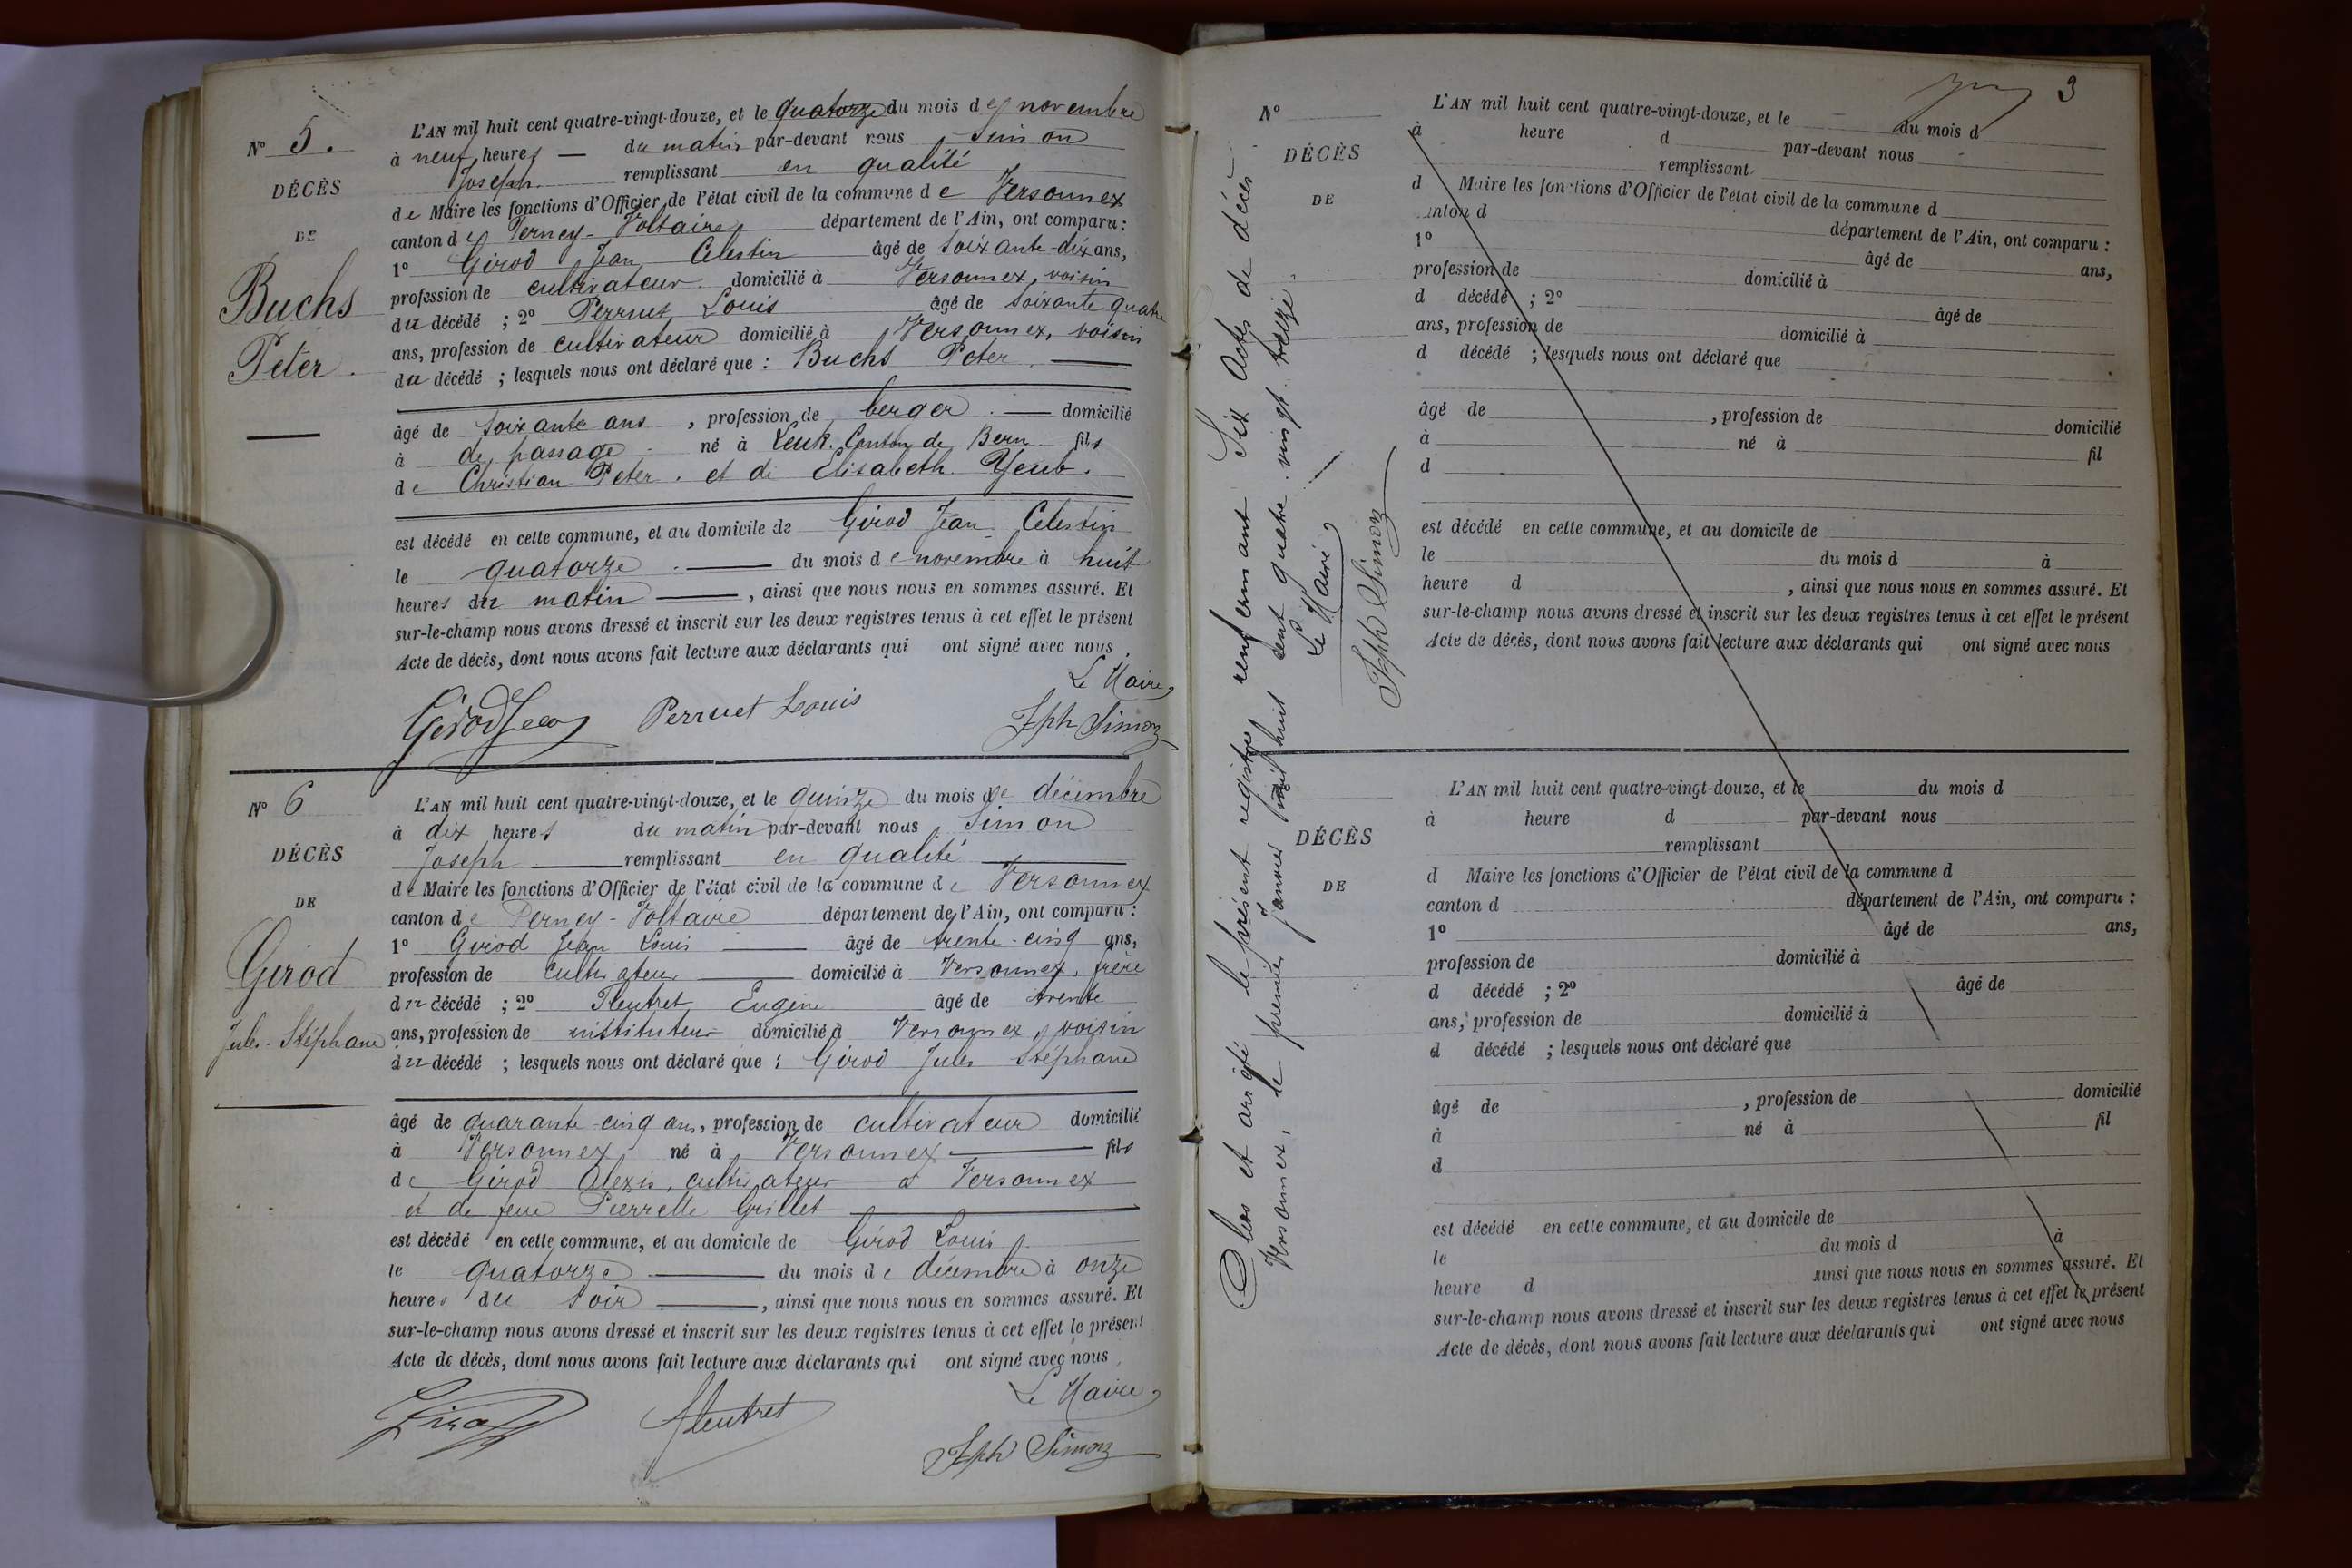 L'AN mil huit cent quatre-vingt-douze, et le quatorze du mois de novembre
N° 5. à neuf heures — du matin par-devant nous Simon
Joseph remplissant en qualité
DÉCÈS
de Maire les fonctions d'Officier de l'état civil de la commune de Versonnex
DE
canton de Ferney-Voltaire département de l'Ain, ont comparu :
1° Girod Jean Celestin âgé de soixante-dix ans,
Buchs
profession de cultivateur domicilié à Versonnex, voisin
du décédé ; 2° Perruet Louis âgé de soixante quatre
Péter.
ans, profession de cultivateur domicilié à Versonnex, voisin
du décédé ; lesquels nous ont déclaré que : Buchs Peter
âgé de soixante ans, profession de berger. — domicilié
à de passage né à Lenk. Canton de Bern fils
de Christian Peter. et de Elisabeth
est décédé en cette commune, et au domicile de Girod Jean Celestin
le quatorze. — du mois de novembre à huit
heures du matin —, ainsi que nous nous en sommes assuré. Et
sur-le-champ nous avons dressé et inscrit sur les deux registres tenus à cet effet le présent
Acte de décès, dont nous avons fait lecture aux déclarants qui ont signé avec nous.
Le Maire,
Girod Jean Perruet Louis Jph Simon
N° 6 L'AN mil huit cent quatre-vingt-douze, et le quinze du mois de décembre
à dix heures du matin par-devant nous Simon
DÉCÈS
Joseph — remplissant en qualité —
de Maire les fonctions d'Officier de l'état civil de la commune de Versonnex
DE
canton de Ferney-Voltaire département de l'Ain, ont comparu :
1° Girod Jean Louis — âgé de trente-cinq ans,
Girod
profession de cultivateur — domicilié à Versonnex, frère
du décédé ; 2° Fleutret Eugène âgé de trente
Jules-Stéphane
ans, profession de instituteur domicilié à Versonnex, voisin
du décédé ; lesquels nous ont déclaré que : Girod Jules Stéphane
âgé de quarante-cinq ans, profession de cultivateur domicilié
à Versonnex né à Versonnex — fils
de Girod Alexis, cultivateur à Versonnex
et de feue Pierrette Grillet —
est décédé en cette commune, et au domicile de Girod Louis
le quatorze — du mois de décembre à onze
heures du soir —, ainsi que nous nous en sommes assuré. Et
sur-le-champ nous avons dressé et inscrit sur les deux registres tenus à cet effet le présent
Acte de décès, dont nous avons fait lecture aux déclarants qui ont signé avec nous,
Le Maire,
Girod Fleutret
Jph Simon
Clos et arrêté le présent registre renfermant Six Actes de décès
Versonnex, le premier janvier mil huit cent quatre-vingt-treize.
Le Maire,
Jph Simon
3
N° L'AN mil huit cent quatre-vingt-douze, et le du mois d
à heure d par-devant nous
DÉCÈS
remplissant
d Maire les fonctions d'Officier de l'état civil de la commune d
DE
canton d département de l'Ain, ont comparu :
1° âgé de ans,
profession de domicilié à
d décédé ; 2° âgé de
ans, profession de domicilié à
d décédé ; lesquels nous ont déclaré que
âgé de , profession de domicilié
à né à fil
d
est décédé en cette commune, et au domicile de
le du mois d à
heure d , ainsi que nous nous en sommes assuré. Et
sur-le-champ nous avons dressé et inscrit sur les deux registres tenus à cet effet le présent
Acte de décès, dont nous avons fait lecture aux déclarants qui ont signé avec nous
L'AN mil huit cent quatre-vingt-douze, et le du mois d
à heure d par-devant nous
DÉCÈS
remplissant
d Maire les fonctions d'Officier de l'état civil de la commune d
DE
canton d département de l'Ain, ont comparu :
1° âgé de ans,
profession de domicilié à
d décédé ; 2° âgé de
ans, profession de domicilié à
d décédé ; lesquels nous ont déclaré que
âgé de , profession de domicilié
à né à fil
d
est décédé en cette commune, et au domicile de
le du mois d à
heure d ainsi que nous nous en sommes assuré. Et
sur-le-champ nous avons dressé et inscrit sur les deux registres tenus à cet effet le présent
Acte de décès, dont nous avons fait lecture aux déclarants qui ont signé avec nous